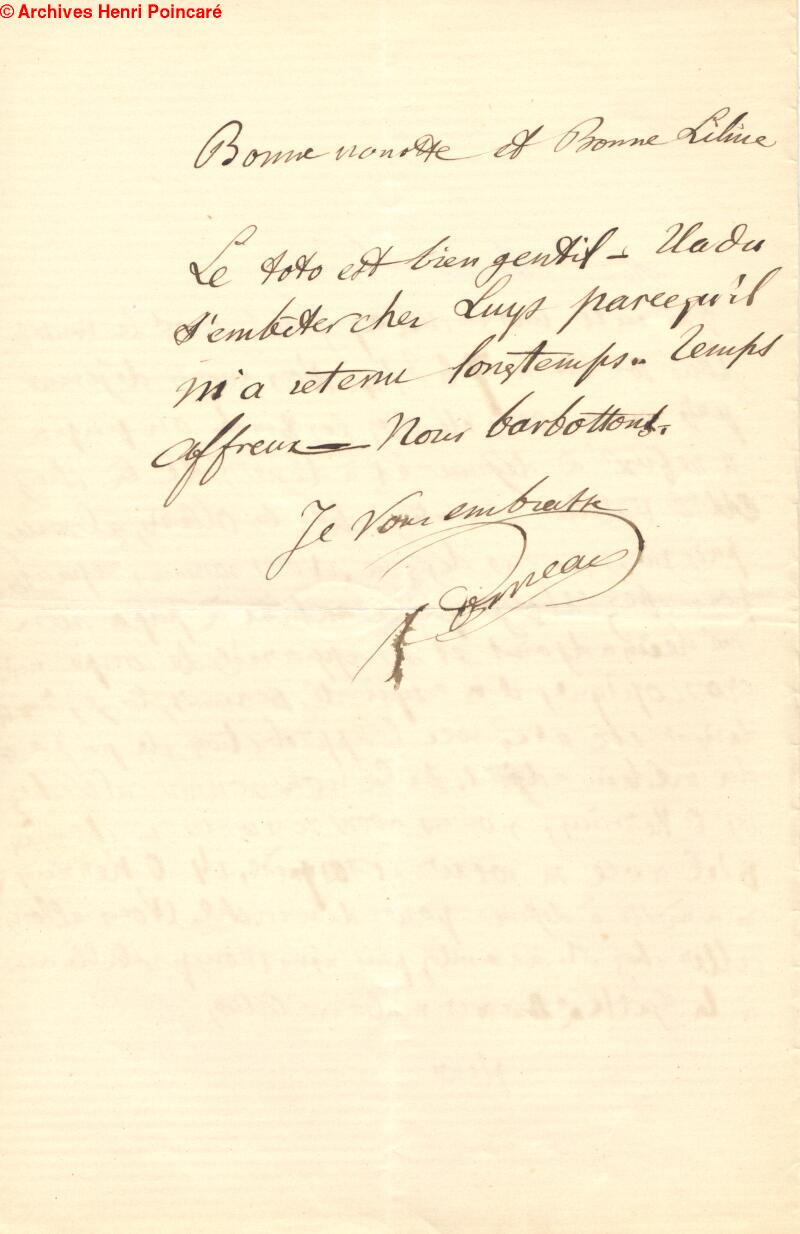 © Archives Henri Poincaré
Bonne nonotte et Bonne Liline
Le toto est bien gentil – Il a du
s'embêter chez Luys parcequ'il
m'a retenu longtemps.. Temps
affreux — Nous barbottons.
Je vous embrasse